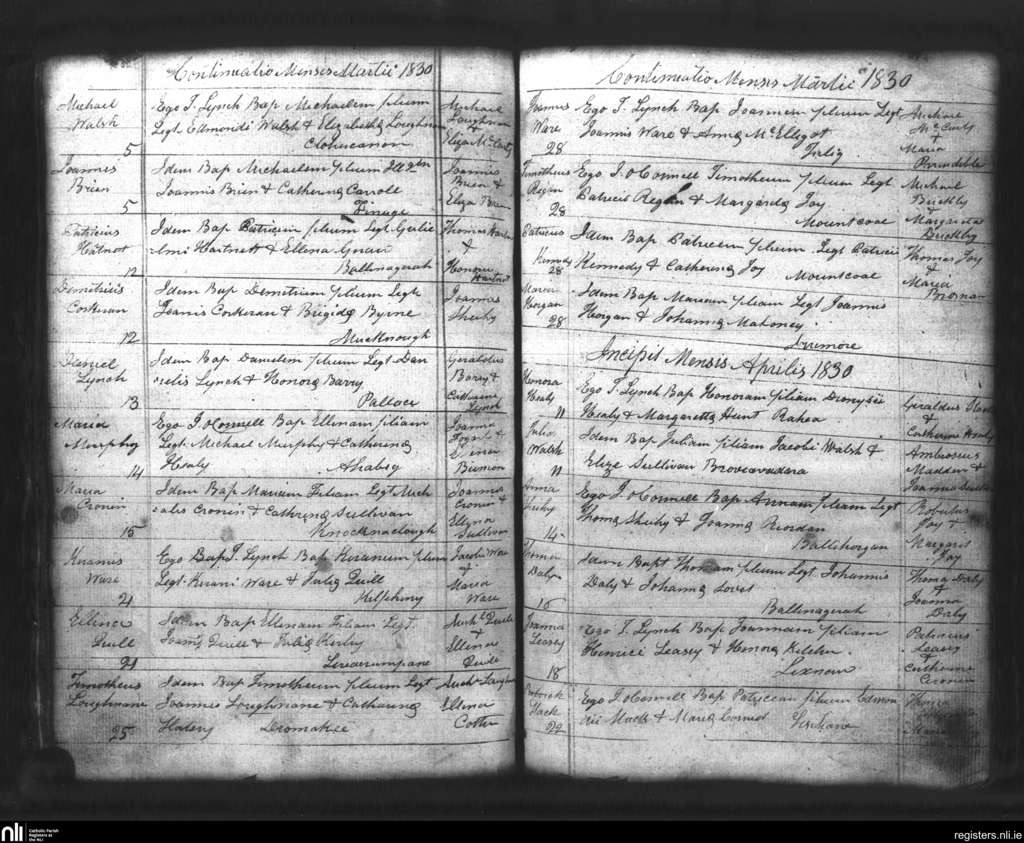 Continuatio Mensis Martii 1830
Michael Walsh 5
Ego J. Lynch Bap Michaelem filium
Legt Edmondi Walsh & Elizabetha Loughnan
Clohucanon
Michael Loughnan & Eliza McCarty
Joannis Brien 5
Idem Bap Michaelem filium
Joannis Brien & Catherina Carroll
Finuge
Joannis Brien & Eliza Brien
Patricius Hatnot 12
Idem Bap Patricium filium Legt Gulie
lmi Hartnett & Ellena
Ballinagerah
Thomas & Honora Hartnet
Demetrius Corkeran 12
Idem Bap Demetrium filium Legt
Joanis Corkeran & Brigida Byrne
Mucknough
Joanna Sheehy
Daniel Lynch 13
Idem Bap Danielem filium Legt Dan
ielis Lynch & Honora Barry
Pallace
Geraldus Barry & Catherina Lynch
Maria Murphy 14
Ego J. OConnell Bap Ellenam filiam
Legt Michael Murphy & Catherina
Healy Ahabeg
Joanna &
Maria Cronin 15
Idem Bap Mariam Filiam Legt Mich
aelis Cronin & Cathrina Sullivan
Knocknaclough
Joannis Cronin & Ellena Sullivan
Keranus Ware 21
Ego Bap J. Lynch Bap Keranum filium
Legt Kerani Ware & Julia Quill
Kilfeheny
Jacobi Ware & Maria Ware
Ellena Quill 21
Idem Bap Ellenam Filiam Legt
Joanis Quill & Julia Kirby
Michl Quill & Ellena Quile
Timotheus Loughnane 25
Idem Bap Timotheum filium Legt
Joannis Loughnane & Catharina
Slatery Dromakee
Michl Loughnan Ellena Cotter
Continuatio Mensis Martii 1830
Joannes Ware 28
Ego J. Lynch Bap Joannem filium Legt
Joannis Ware & Anna McElligot
Michael McCarty & Maria
Timotheus Regan 28
Ego J. OConnell Timotheum filium Legt
Patricii Regan & Margarita Joy
Mountcoal
Michael Buckly & Margareta Buckly
Patricius Kennedy 28
Idem Bap Patricium filium Legt Patricii
Kennedy & Catherina Joy
Mountcoal
Thomas Joy & Maria Brosnan
Maria Horgan 28
Idem Bap Mariam filiam Legt Joannis
Horgan & Johanna Mahoney
Irremore
Incipit Mensis Aprilis 1830
Honora Healy 11
Ego J. Lynch Bap Honoram filiam Dionysii
Healy & Margaretta Hunt Rahea
Geraldus & Catherine Healy
Julia Walsh 11
Idem Bap Juliam filiam Jacobi Walsh &
Eliza Sullivan
Ambrosius Madden & Joanna
Anna Sheehy 14
Ego J. OConnell Bap Annam filiam Legt
Thoma Sheehy & Joanna Riordan
Ballihorgan
Robertus Joy & Margarit Joy
Thoma Daly 16
Idem Bapt Thomam filium Legt Johannis
Daly & Johanna Lovet
Ballinagerah
Thoma Daly & Joanna Daly
Joanna Leasey 18
Ego J. Lynch Bap Joannam filiam
Henrici Leasey & Honora
Lixnaw
Patricius Leasey & Catherine Cronin
Patrick Hack 22
Ego J. OConnell Bap Patricium filium Edmon
di Hack & Maria
nli
Catholic Parish
Registers at
the NLI
registers.nli.ie